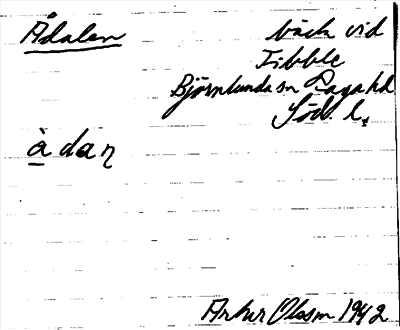 Ådalen bäck vid
Tibble
Björnlunda sn Daga hd
Söd. l.
àdaɳ
Artur Olsson 1942